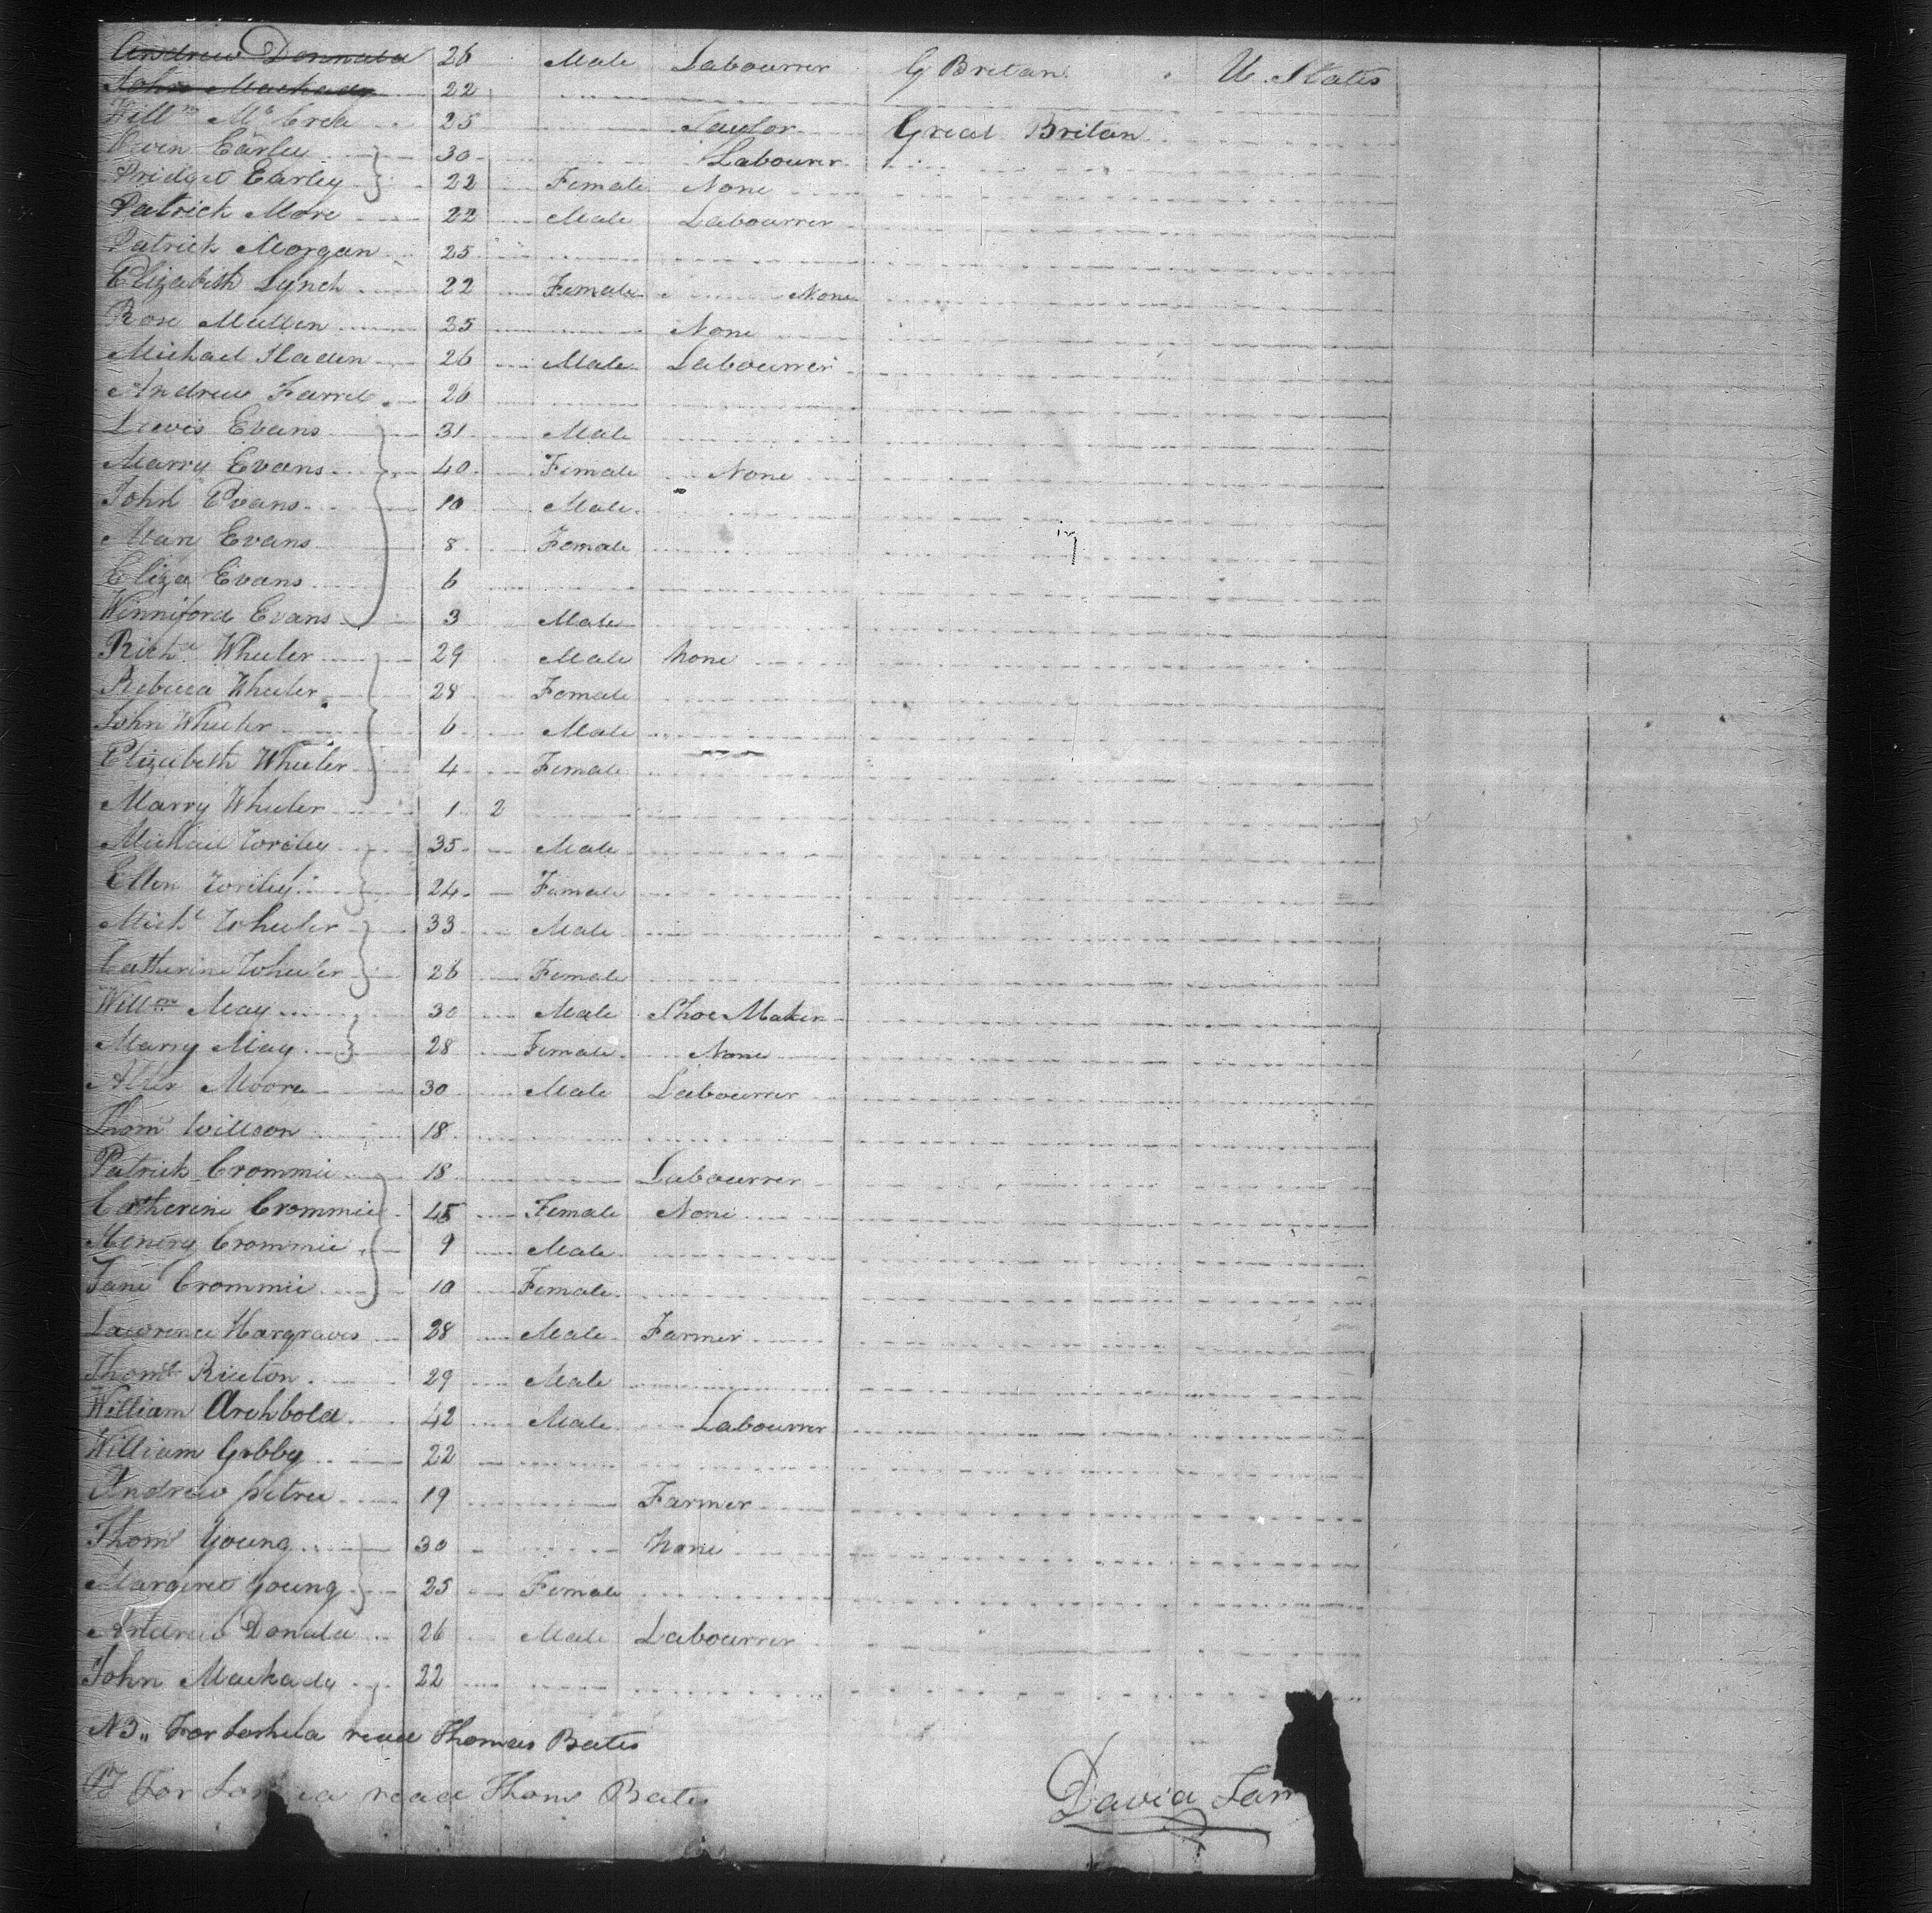 Andrew Donnald 26 Male Labourrer G Britan U. States
John Mackady 22
Willm McCrea 25 Taylor Great Britan
Owen Earley 30 Labourer
Bridget Earley 22 Female None
Patrick More 22 Male Labourrer
Patrick Morgan 25
Elizabeth Lynch 22 Female None
Rose Mullen 25 None
Michael Haden 26 Male Labourrer
Andrew Farrel 26
Lewis Evans 31 Male
Marry Evans 40 Female None
John Evans 10 Male
Mary Evans 8 Female
Eliza Evans 6
Winniford Evans 3 Male
Richd Wheeler 29 Male None
Rebecca Wheeler 28 Female
John Wheeler 6 Male
Elizabeth Wheeler 4 Female
Marry Wheeler 1 2
Michael 35 Male
Ellen 24 Female
Michl Wheeler 33 Male
Catherine Wheeler 26 Female
Willm May 30 Male Shoe Maker
Marry May 28 Female None
Alex Moore 30 Male Labourrer
Thom Willson 18
Patrick Crommie 18 Labourrer
Catherine Crommie 45 Female None
Henery Crommie 9 Male
Jane Crommie 10 Female
Lawrence Hargraves 28 Male Farmer
Thoms 29 Male
William Archbold 42 Male Labourrer
William Gobby 22
Andrew petree 19 Farmer
Thom Young 30 None
Margret Young 25 Female
Andrew Donald 26 Male Labourrer
John Mackady 22
NB,, For Joshua read Thomas Bates
For read Thoms Bates
David